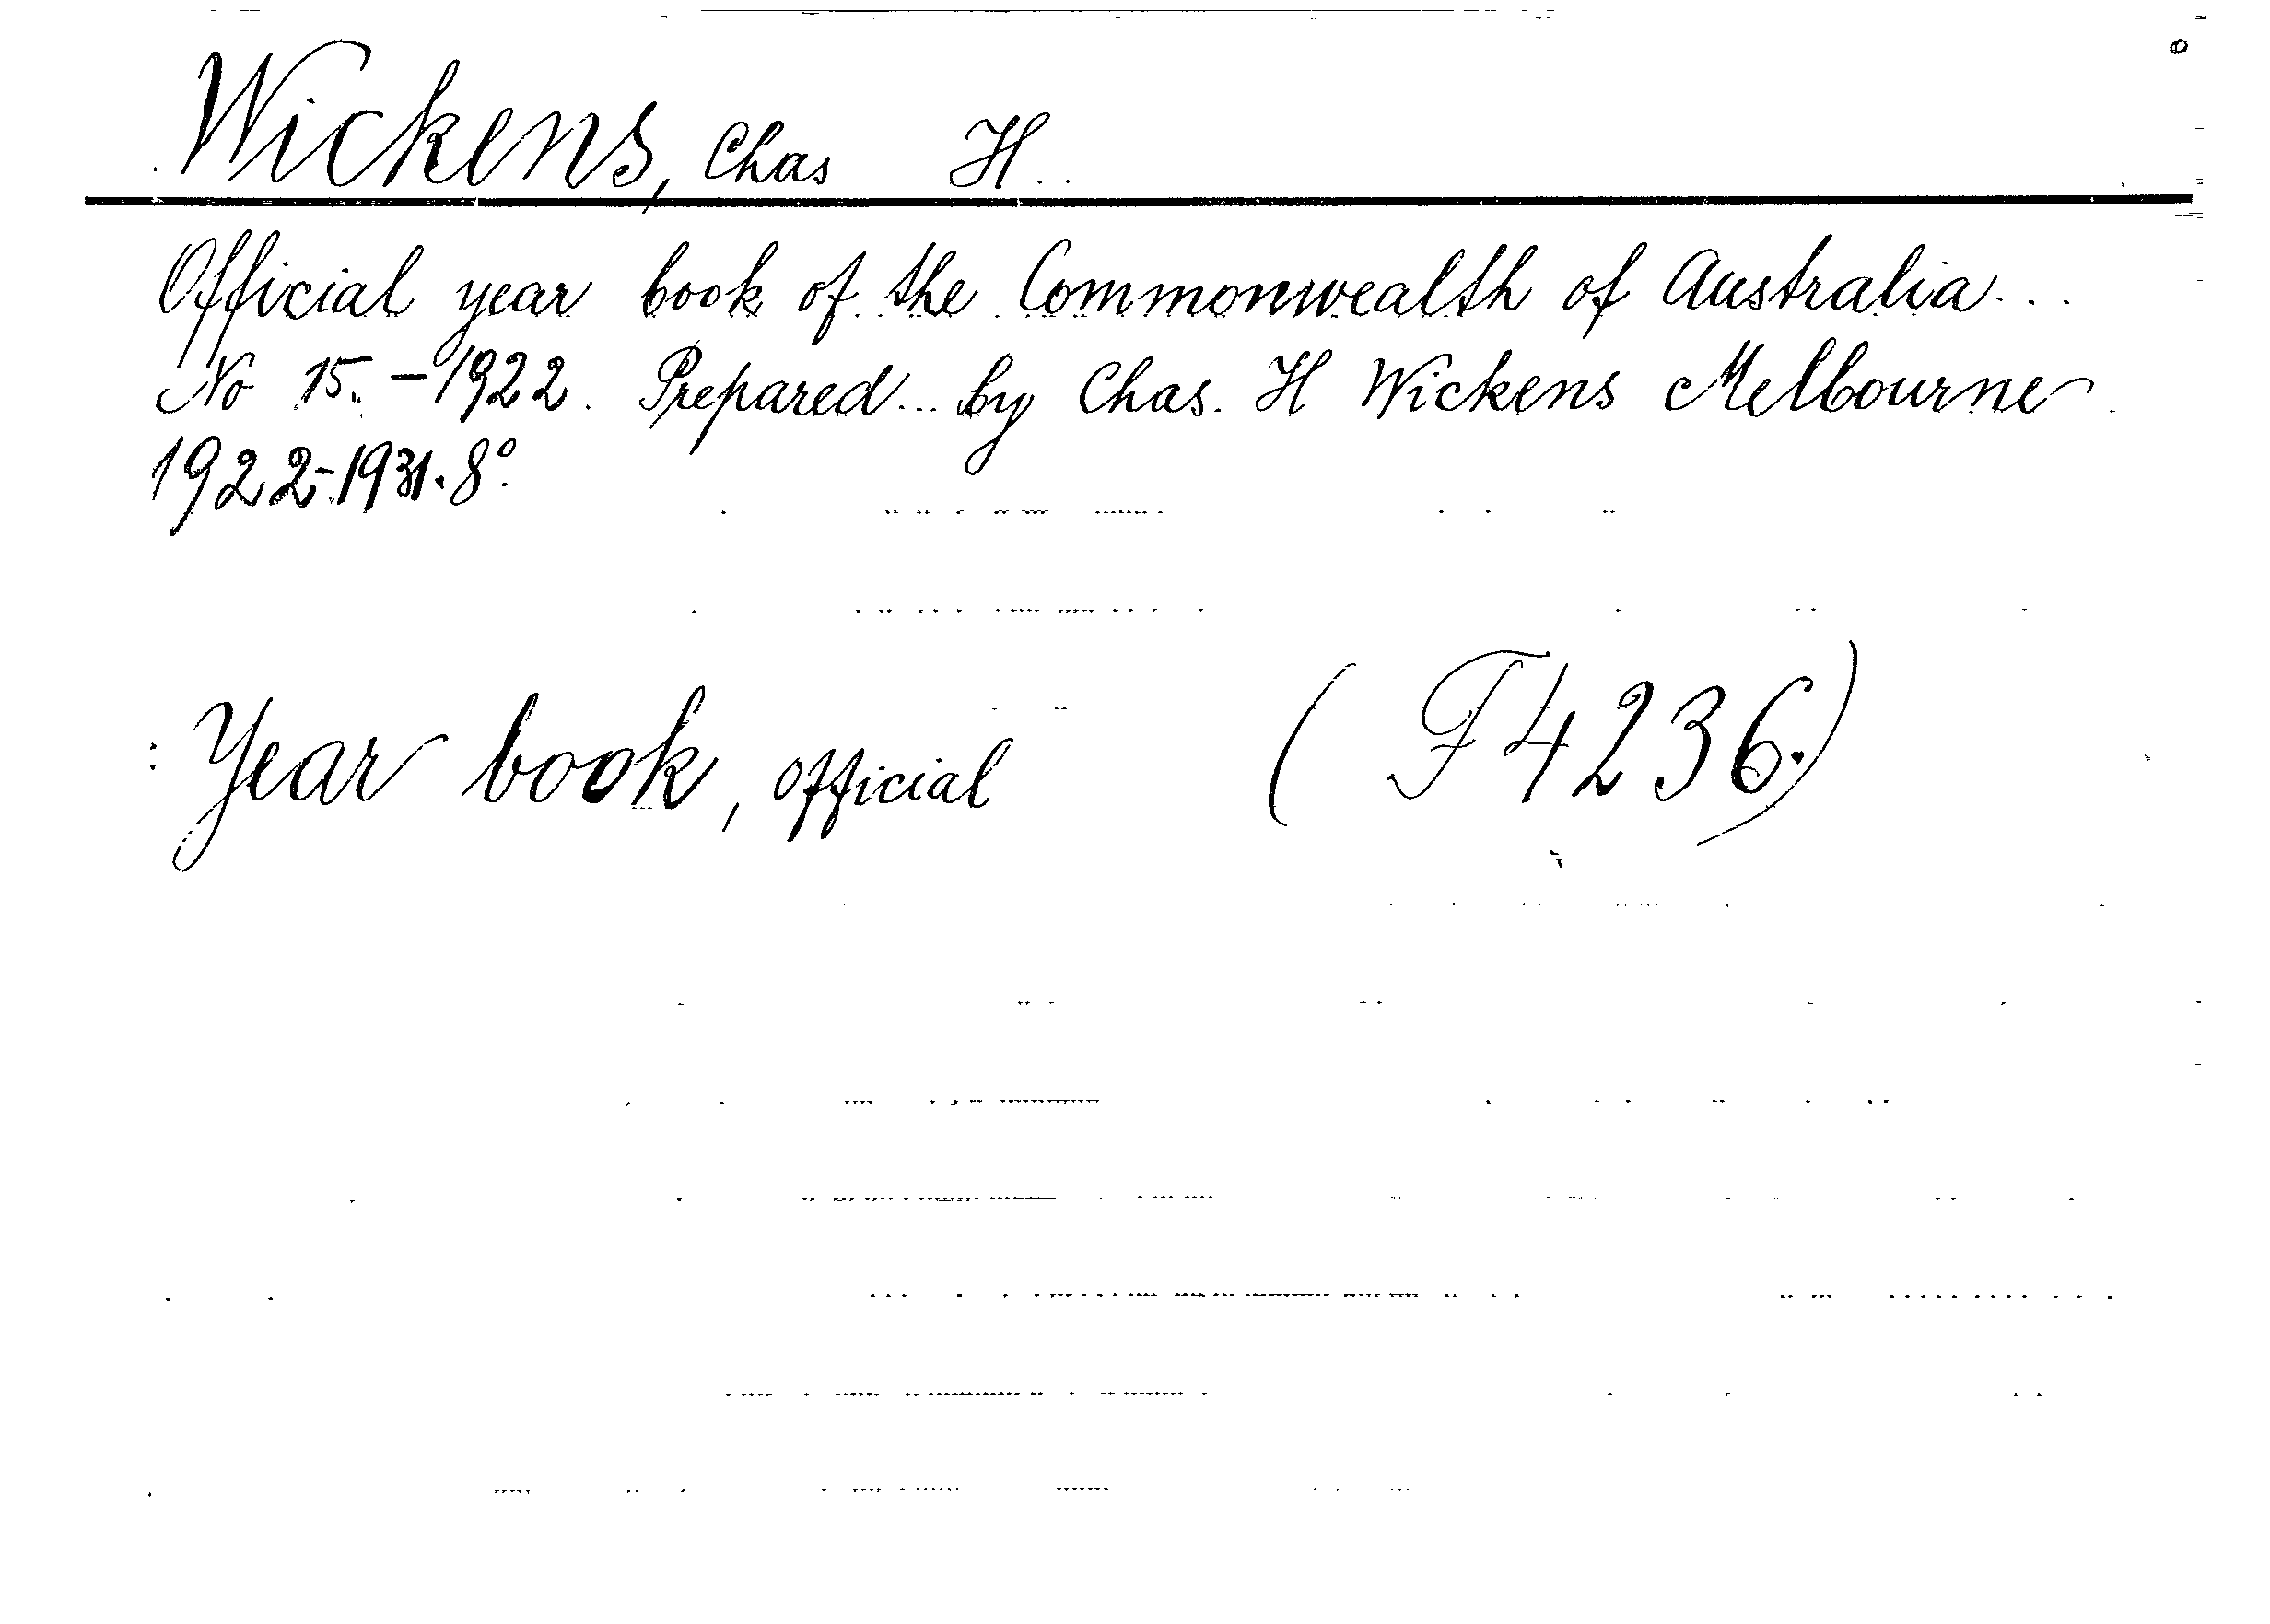 Wickens, Chas H..
Official year book of the Commonwealth of Australia...
No 15. - 1922. Prepared... by Chas. H Wickens Melbourne
1922-1931. 8°.
Year book, official (F4236.)